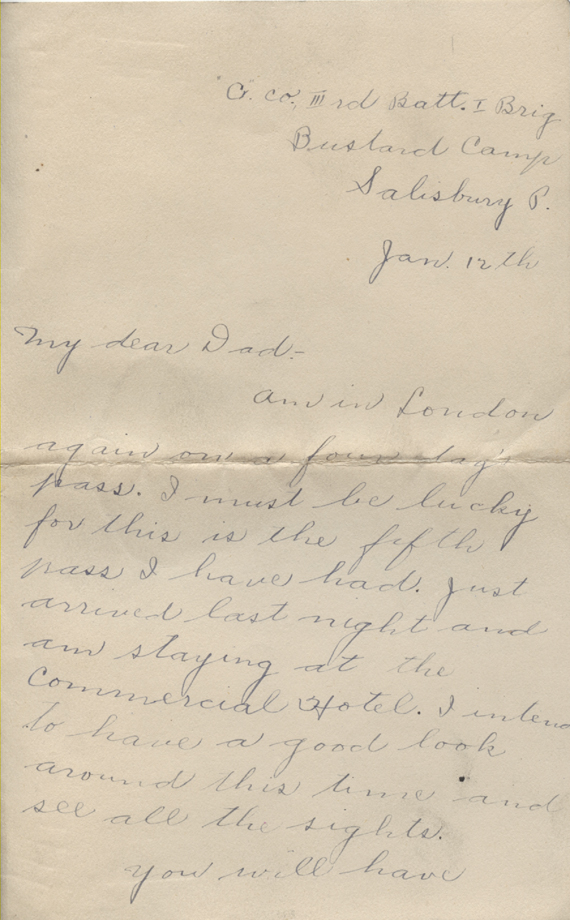 G. Co. III rd Batt. I Brig
Bustard Camp
Salisbury P.
Jan. 12th
My dear Dad:-
am in London
again on a four day's
pass. I must be lucky
for this is the fifth
pass I have had. Just
arrived last night and
am staying at the
Commercial Hotel. I intend
to have a good look
around this time and
see all the sights.
You will have